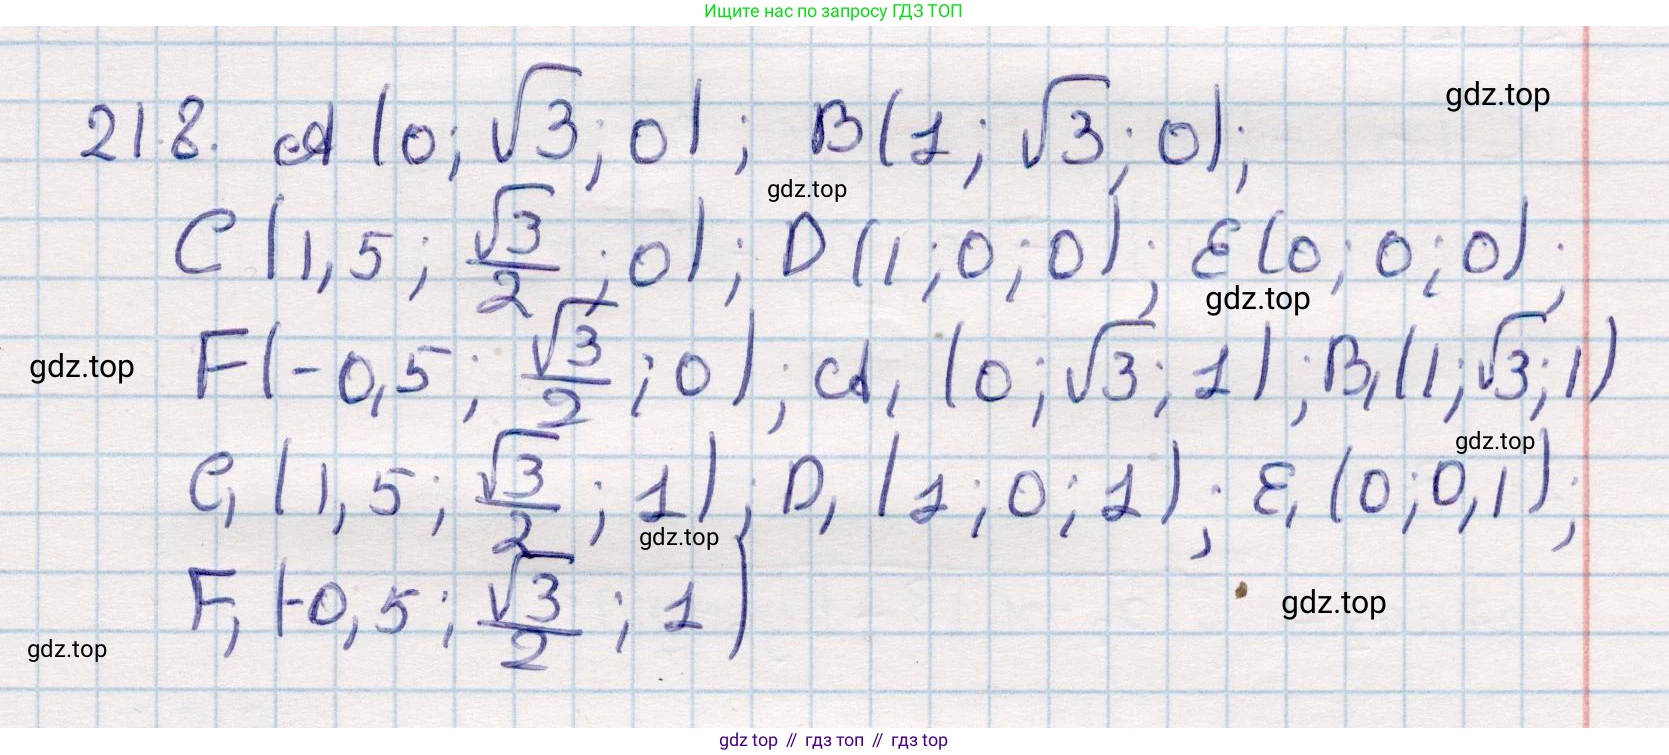 Ищите нас по запросу ГДЗ ТОП
21.8. A (0; √3; 0); B(1; √3; 0); gdz.top
gdz.top
C (1,5; √3/2; 0); D (1; 0; 0); E(0; 0; 0);
gdz.top
gdz.top F(-0,5; √3/2; 0); A₁ (0; √3; 1); B₁(1; √3; 1)
gdz.top
C₁ (1,5; √3/2; 1); D₁ (1; 0; 1); E₁ (0; 0, 1);
gdz.top
F₁ (-0,5; √3/2; 1) gdz.top
gdz.top
gdz top // гдз топ // гдз top